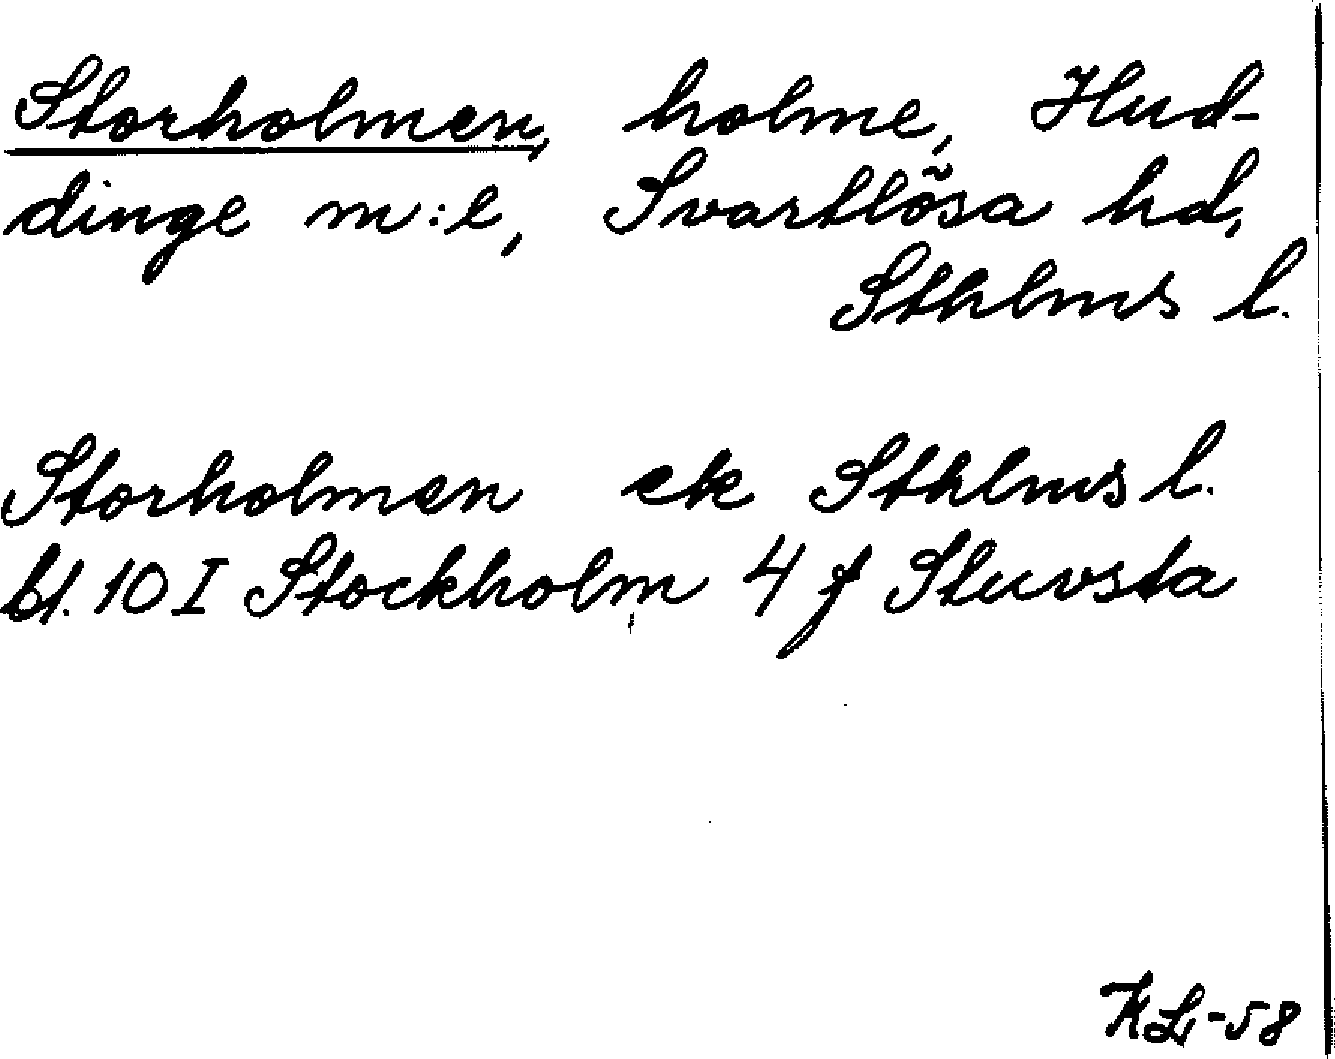 Storholmen, holme, Hud-
dinge m:l, Svartlösa hd,
Sthlms l.
Storholmen ek Sthlms l.
bl. 10 I Stockholm 4 f Stuvsta
KL-58